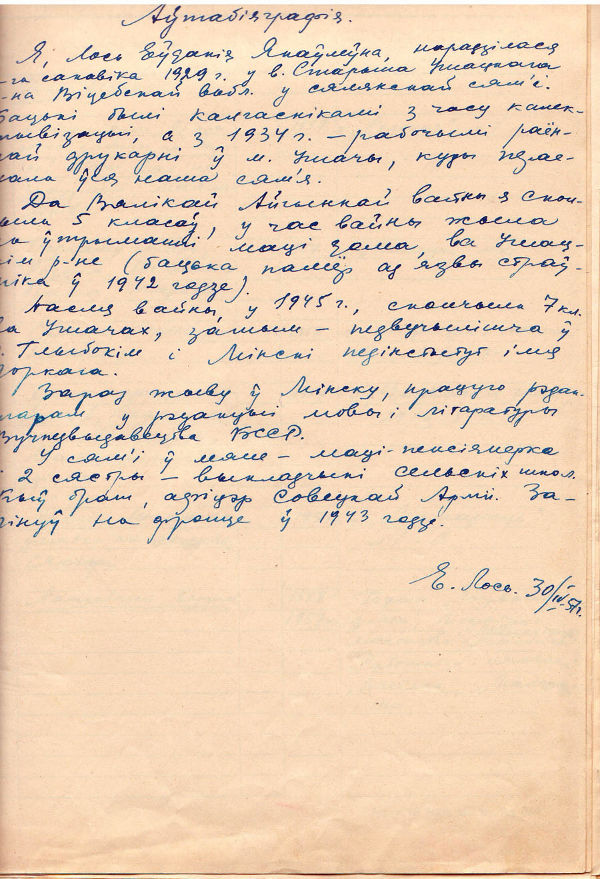 Аўтабіяграфія.
Я, Лось Еўдакія Якаўлеўна, нарадзілася
-га сакавіка 1929 г. у в. Старына Ушацкага
-на Віцебскай вобл. у сялянскай сям'і.
бацькі былі калгаснікамі з часу калек-
тывізацыі, а з 1934 г. – рабочымі раён-
най друкарні ў м. Ушачы, куды пера-
ехала ўся наша сям'я.
Да Вялікай Айчыннай вайны я скон-
чыла 5 класаў, у час вайны жыла
на ўтрыманні маці дома, ва Ушац-
кім р-не (бацька памёр ад язвы страў-
ніка ў 1942 годзе).
Пасля вайны, у 1945 г., скончыла 7 кл.
ва Ушачах, затым – педвучылішча ў
г. Глыбокім і Мінскі педінстытут імя
Горкага.
Зараз жыву ў Мінску, працую рэдак-
тарам у рэдакцыі мовы і літаратуры
Вучпедвыдавецтва БССР.
У сям'і ў мяне – маці-пенсіянерка
і 2 сястры – выкладчыкі сельскіх школ.
Быў брат, афіцэр Совецкай Арміі. За-
гінуў на фронце ў 1943 годзе.
Е. Лось. 30/IV-57г.